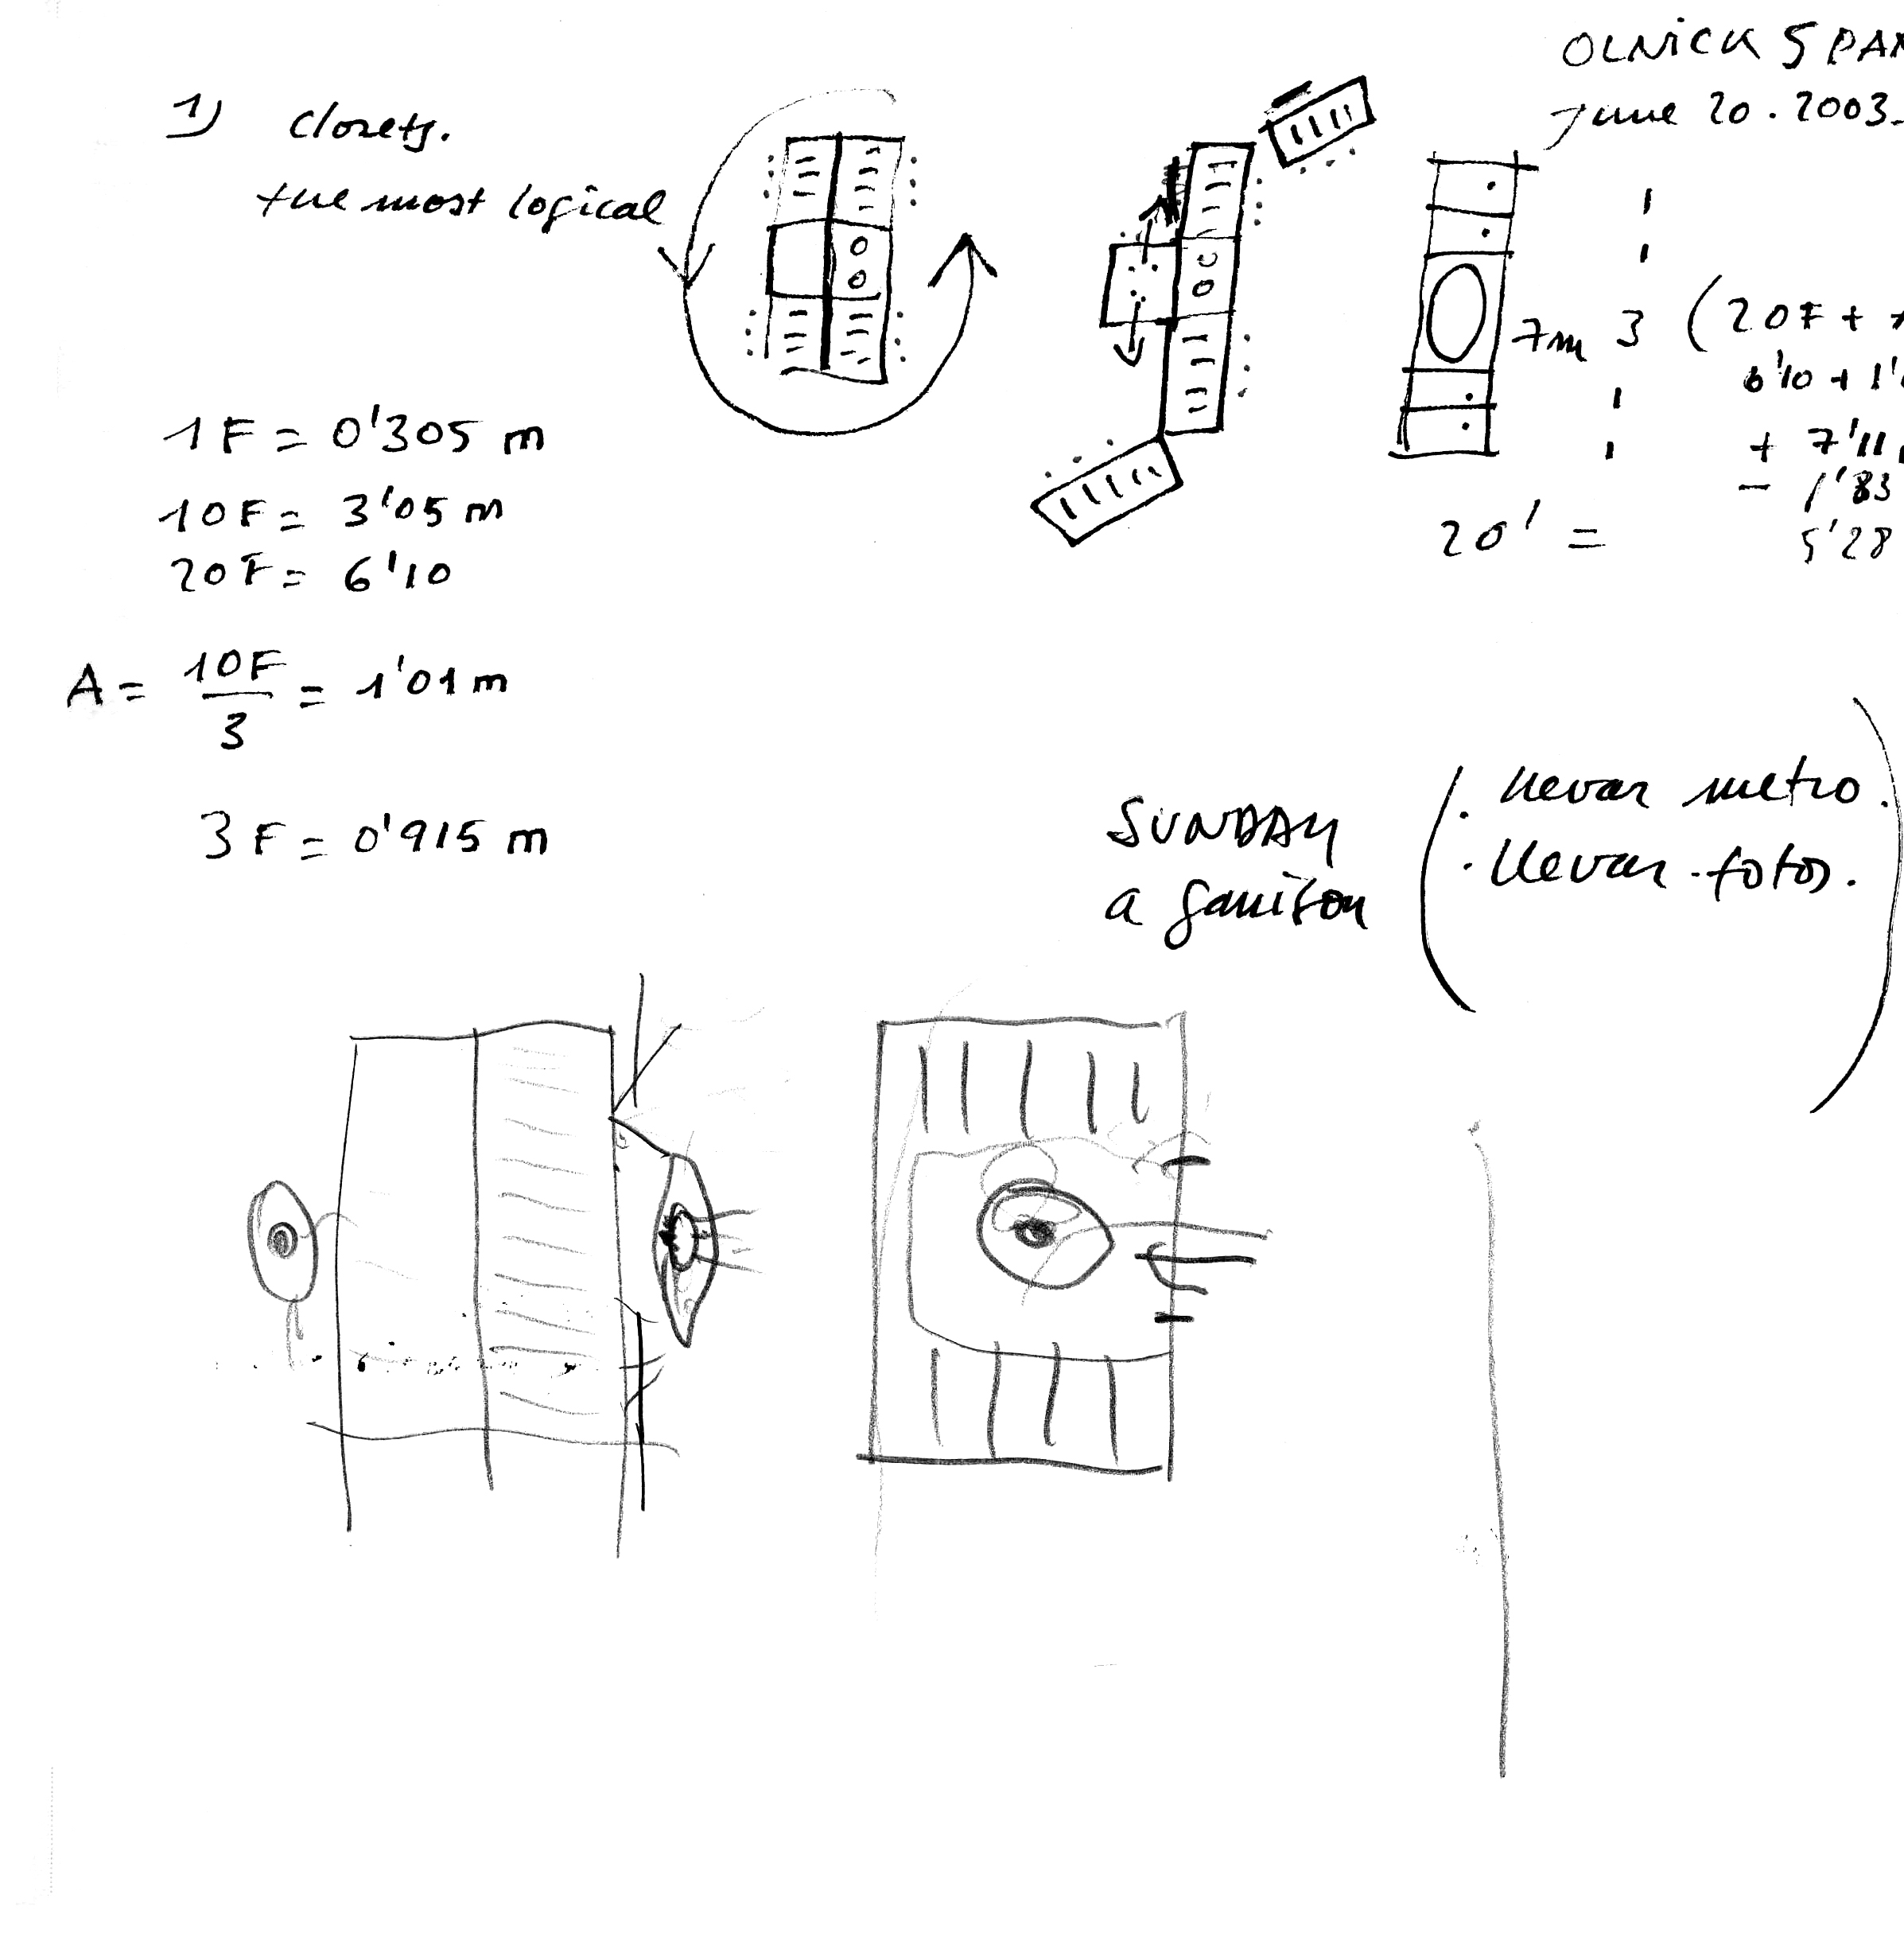 OLNICK SPAN
June 20. 2003.
1) closets.
the most logical
1
1
7m 3 (20F +
6'10 + 1'
1
1
+ 7'11
- 1'83
20' = 5'28
1F = 0'305 m
10F = 3'05 m
20F = 6'10
A = 10F/3 = 1'01 m
3F = 0'915 m
SUNDAY
a Garrison
. llevar metro.
. llevar fotos.